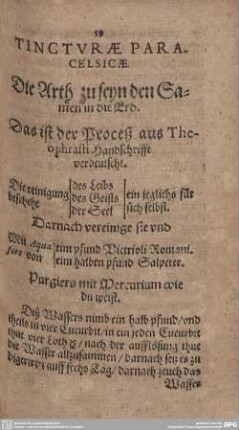 59
TINCTVRÆ PARA-
CELSICÆ.
Die Arth zu seyn den Sa-
men in die Erd.
Das ist der Proceß aus The-
ophrasti Handschrifft
verdeutscht.
Die reinigung beschehe { des Leibs / des Geists / der Seel } ein jeglichs für sich selbst.
Darnach vereinige sie vnd
Mit Aqua fort von { ein pfund Victrioli Romani. / ein halben pfund Salpeter.
Purgiers mit Mercurium wie
du weist.
Diß Wassers nimb ein halb pfund / vnd
theils in vier Cucurbit / in ein jeden Cucurbit
thue vier Loth / nach der aufflösung thue
die Wasser allzusammen / darnach setz es zu
digerirn auff sechs Tag / darnach zeuch das
Wasser